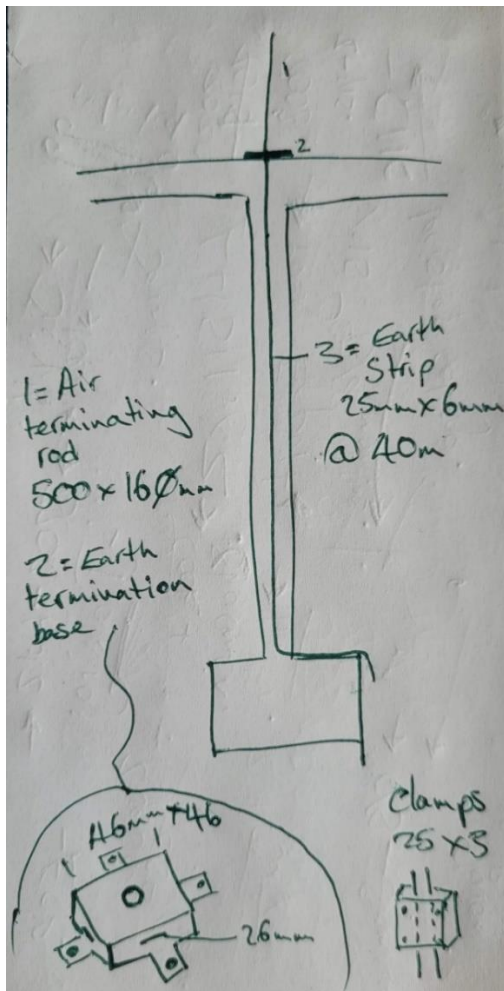 1
2
3= Earth
Strip
25mm x 6mm
@ 40m
1= Air
terminating
rod
500 x 16Ømm
2= Earth
termination
base
46mm x 46
26mm
Clamps
25 x 3